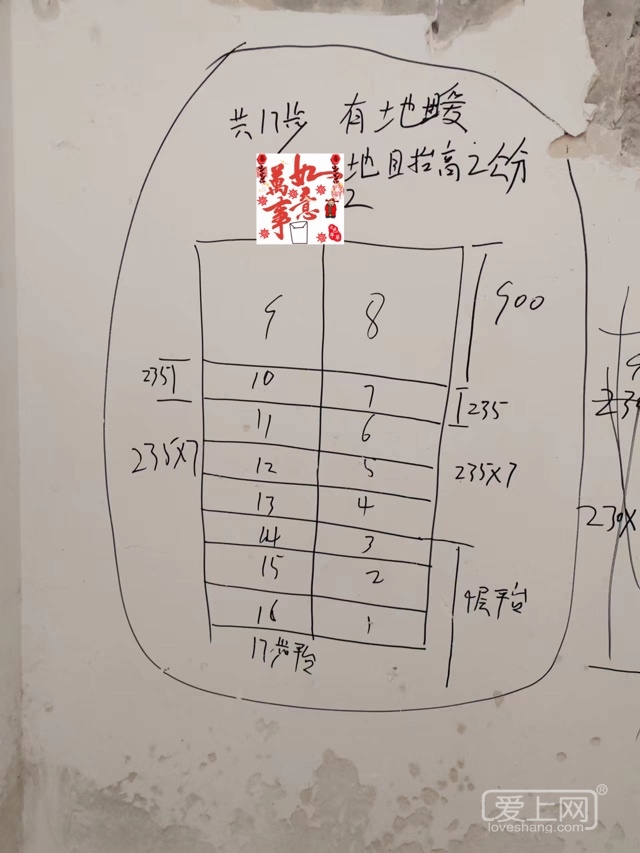 共17步 有地暖
地且抬高2公分
2
萬事如意
9 8 900
235 10 7 235
11 6
235×7 12 5 235×7
13 4
14 3
15 2 4层平台
16 1
17步平台
230×
爱上网®
loveshang.com